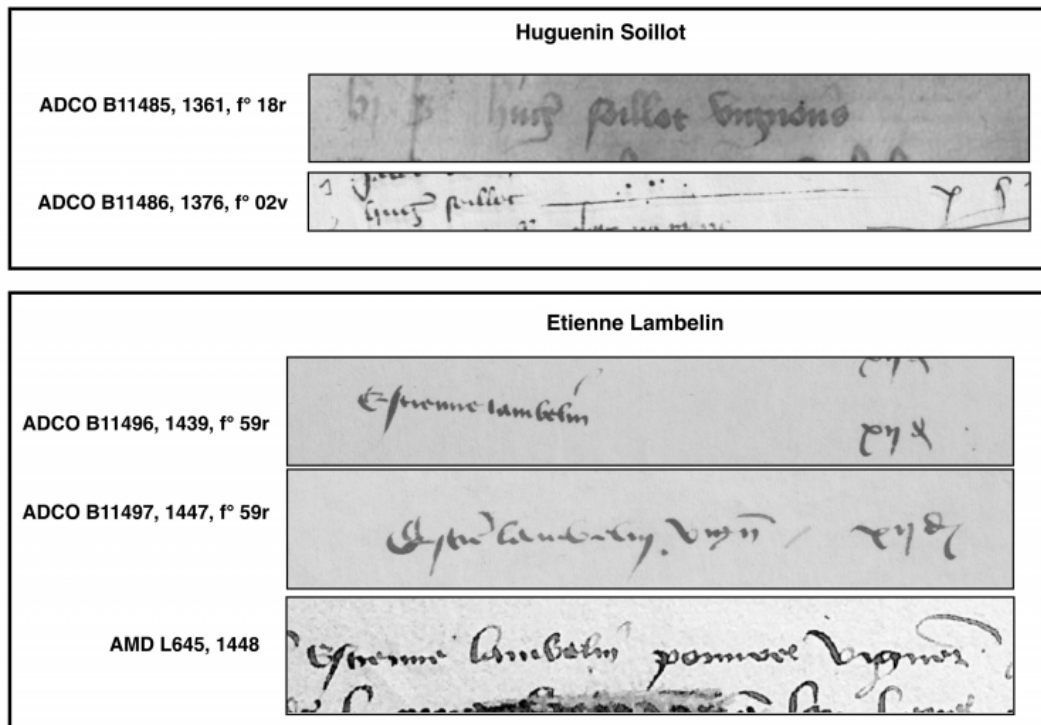 Huguenin Soillot
ADCO B11485, 1361, f° 18r
hug soillot vignerons
ADCO B11486, 1376, f° 02v
hug soillot
Etienne Lambelin
ADCO B11496, 1439, f° 59r
Estienne lambelin xij d
ADCO B11497, 1447, f° 59r
Estie lambelin vign xij d
AMD L645, 1448
Estienne lambelin vigneron